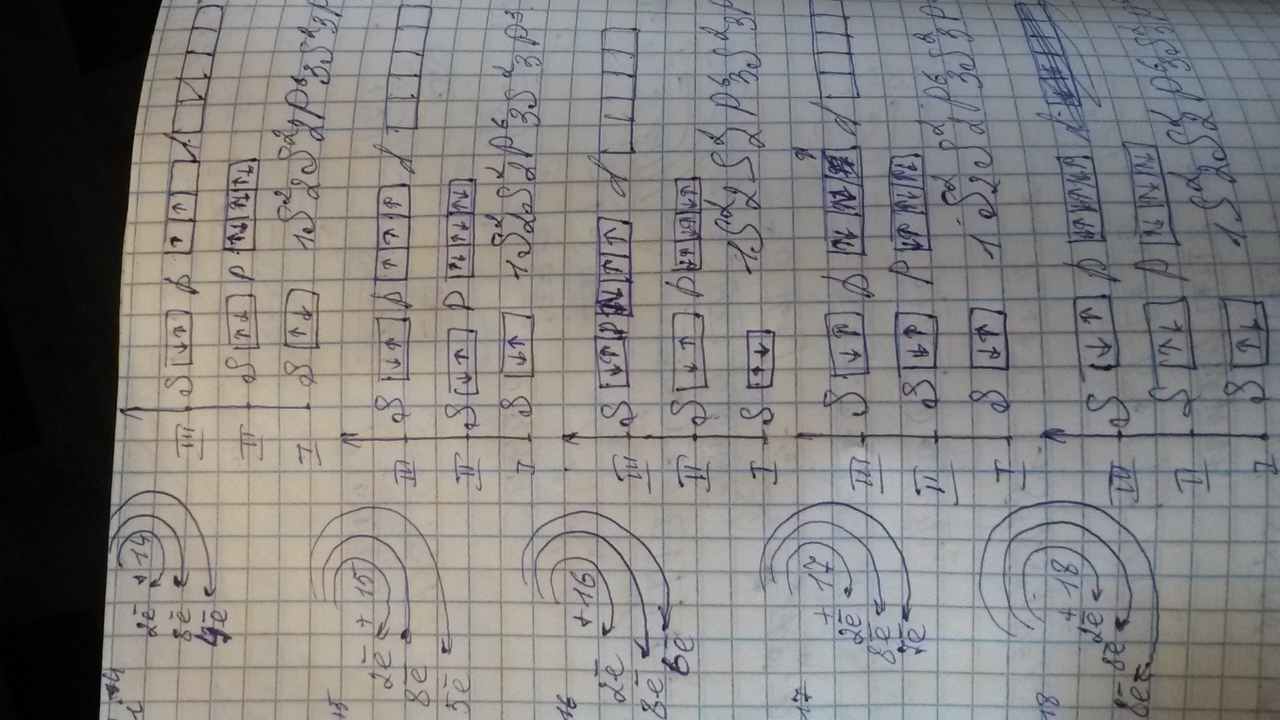 +14
2ē
8ē
4ē
III S ↓↑ p ↑ ↑ d
II S ↑↓ p ↑↓ ↑↓ ↑↓
I S ↑↓ 1S² 2S² 2p⁶ 3S² 3p
15
+15
2ē
8ē
5ē
III S ↓↑ p ↑ ↑ ↑ d
II S ↓↑ p ↑↓ ↑↓ ↑↓
I S ↓↑ 1S² 2S² 2p⁶ 3S² 3p³
16
+16
2ē
8ē
6ē
III S ↓↑ p ↑↓ ↑ ↑ d
II S ↓↑ p ↓↑ ↓↑ ↓↑
I S ↑↓ 1S² 2S² 2p⁶ 3S² 3p
17
+17
2ē
8ē
7ē
III S ↓↑ p d
II S ↓↑ p ↓↑ ↑↓ ↑↓
I S ↓↑ 1S² 2S² 2p⁶ 3S² 3p
18
+18
2ē
8ē
8ē
III S ↓↑ p d
II S ↑↓ p ↑↓ ↑↓ ↑↓
I S ↑↓ 1S² 2S² 2p⁶ 3S² 3p